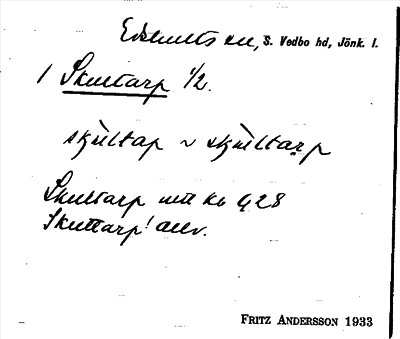 Edshults sn, S. Vedbo hd, Jönk. l.
1 Skultarp 1/2.
skjùltap ~ skjùltarp
Skultarp uti Kb 9,28
Skulltarp! allv.
FRITZ ANDERSSON 1933